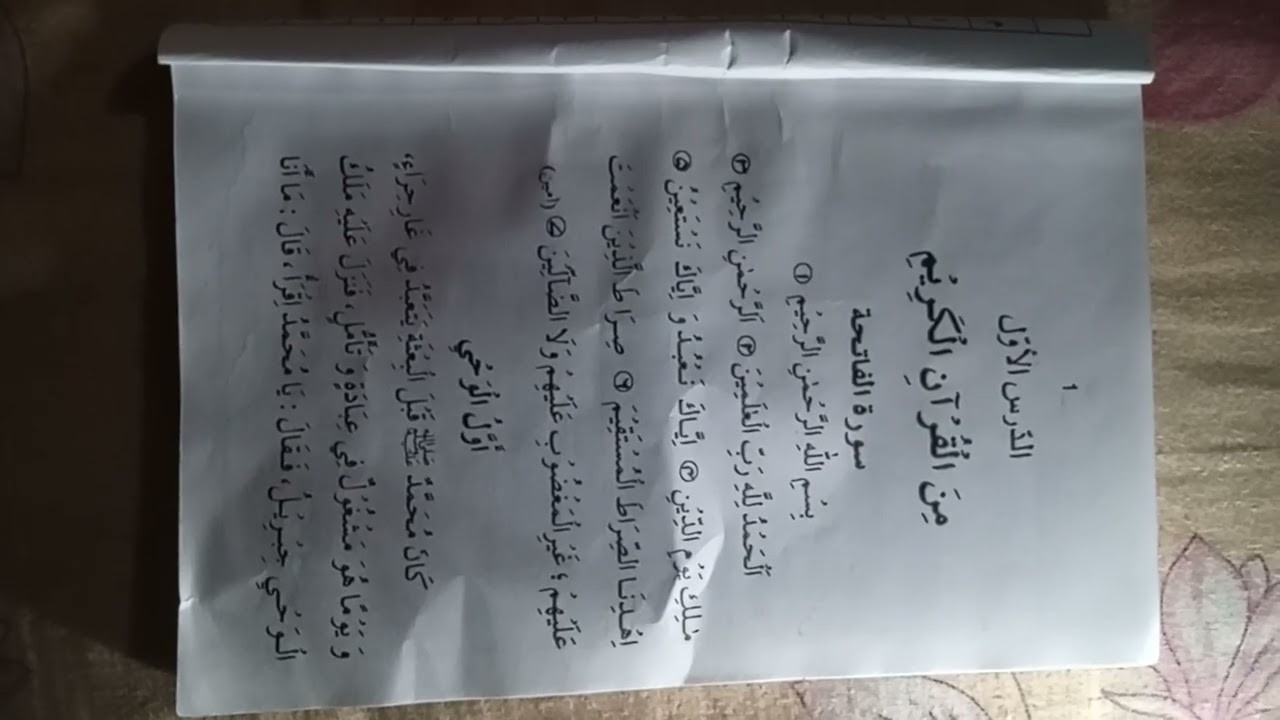 1
الدَّرس الأوّل
مِنَ الْقُرْآنِ الْكَرِيْمِ
سورة الفاتحة
بِسْمِ اللّٰهِ الرَّحْمٰنِ الرَّحِيْمِ ①
اَلْحَمْدُ لِلّٰهِ رَبِّ الْعٰلَمِيْنَ ② اَلرَّحْمٰنِ الرَّحِيْمِ ③
مٰلِكِ يَوْمِ الدِّيْنِ ④ اِيَّاكَ نَعْبُدُ وَ اِيَّاكَ نَسْتَعِيْنُ ⑤
اِهْدِنَا الصِّرَاطَ الْمُسْتَقِيْمَ ⑥ صِرَاطَ الَّذِيْنَ اَنْعَمْتَ
عَلَيْهِمْ ۙ غَيْرِ الْمَغْضُوْبِ عَلَيْهِمْ وَلَا الضَّآلِّيْنَ ⑦ (امين)
أَوَّلُ الْوَحْيِ
كَانَ مُحَمَّدٌ ﷺ قَبْلَ الْبِعْثَةِ يَتَعَبَّدُ فِي غَارِ حِرَاءَ،
وَ يَوْمًا هُوَ مَشْغُوْلٌ فِي عِبَادَةٍ وَ تَأَمُّلٍ، فَنَزَلَ عَلَيْهِ مَلَكُ
الْوَحْيِ جِبْرِيْلُ، فَقَالَ: يَا مُحَمَّدُ اِقْرَأْ، قَالَ: مَا أَنَا